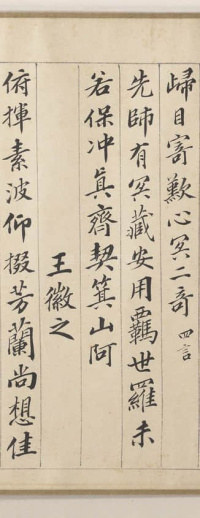 歸目寄歎心冥二奇 四言
先師有冥藏安用羈世羅未
若保冲眞齊契箕山阿
王徽之
俯揮素波仰掇芳蘭尚想佳